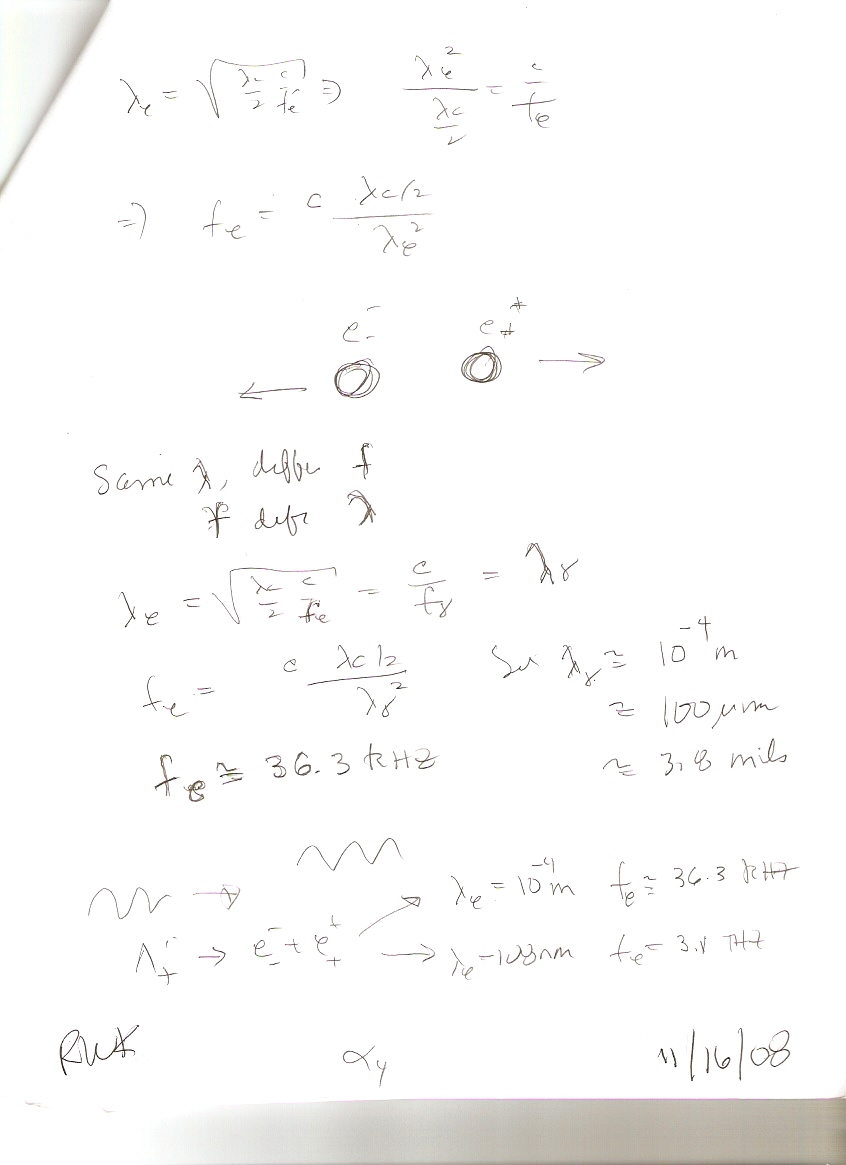 λe = √(λc/2 c/fe) ⇒ λe²/(λc/2) = c/fe
⇒ fe = c (λc/2)/λe²
e⁻₋ e⁺₊
Same λ, f
f λ
λe = √(λc/2 c/fe) = c/fγ = λγ
fe = c (λc/2)/λγ² λγ ≅ 10⁻⁴ m
≅ 100 μm
fe ≅ 36.3 kHz ≅ 3.8 mils
λe = 10⁻⁴ m fe ≅ 36.3 kHz
→ e⁻₋ + e⁺₊ → λe = nm fe = THz
11/16/08